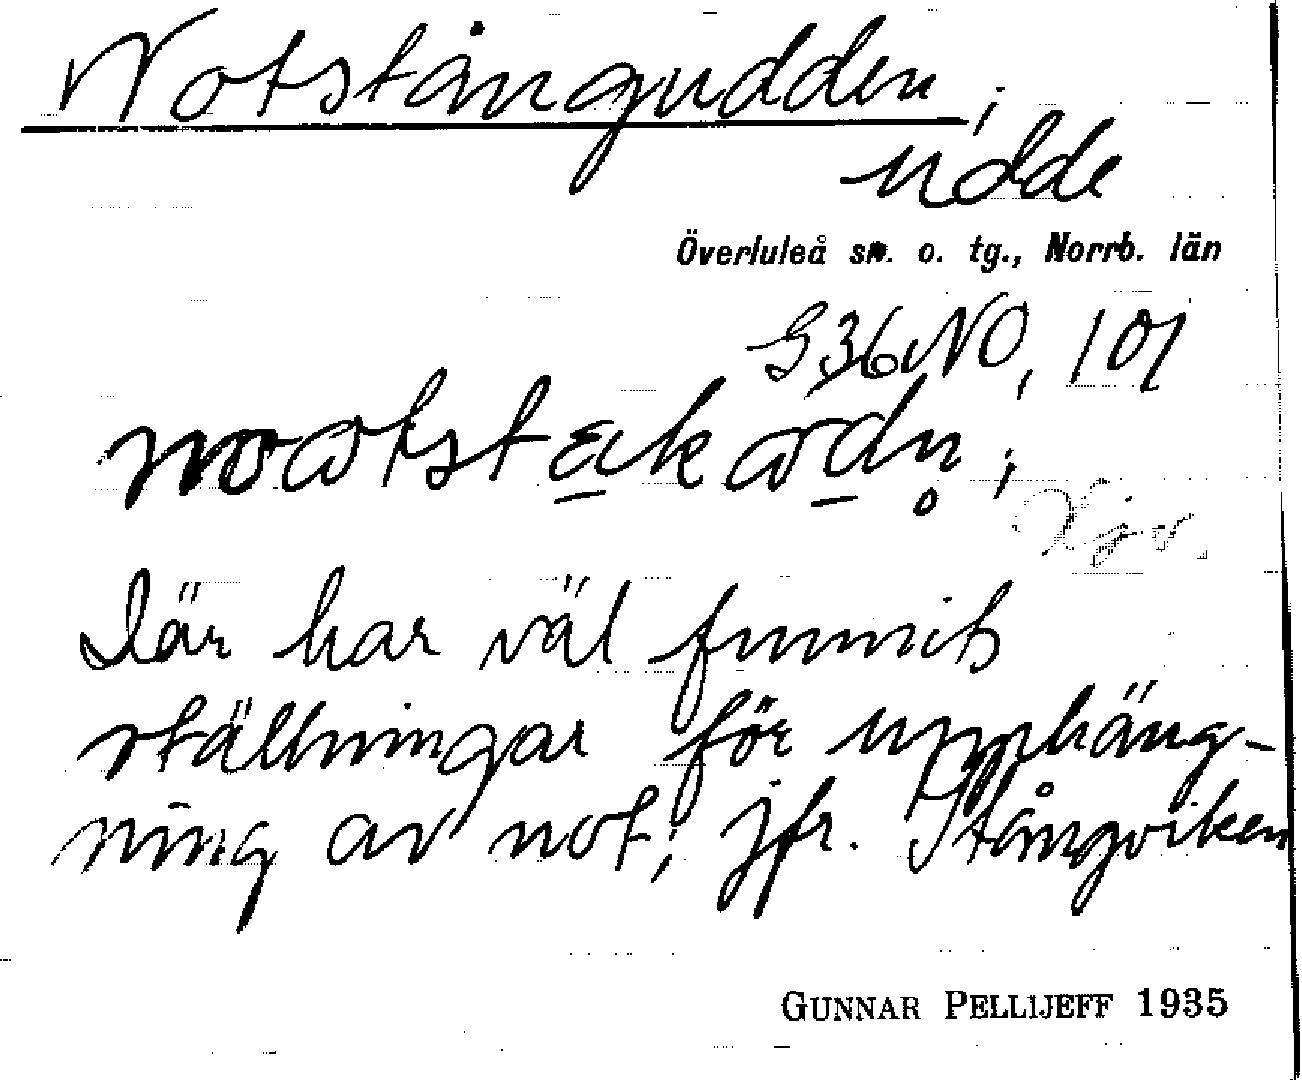 Notstångudden,
udde
Överluleå sn. o. tg., Norrb. län
G36NO, 101
Där har väl funnits
ställningar för upphäng-
ning av not, jfr. Stångviken
GUNNAR PELLIJEFF 1935